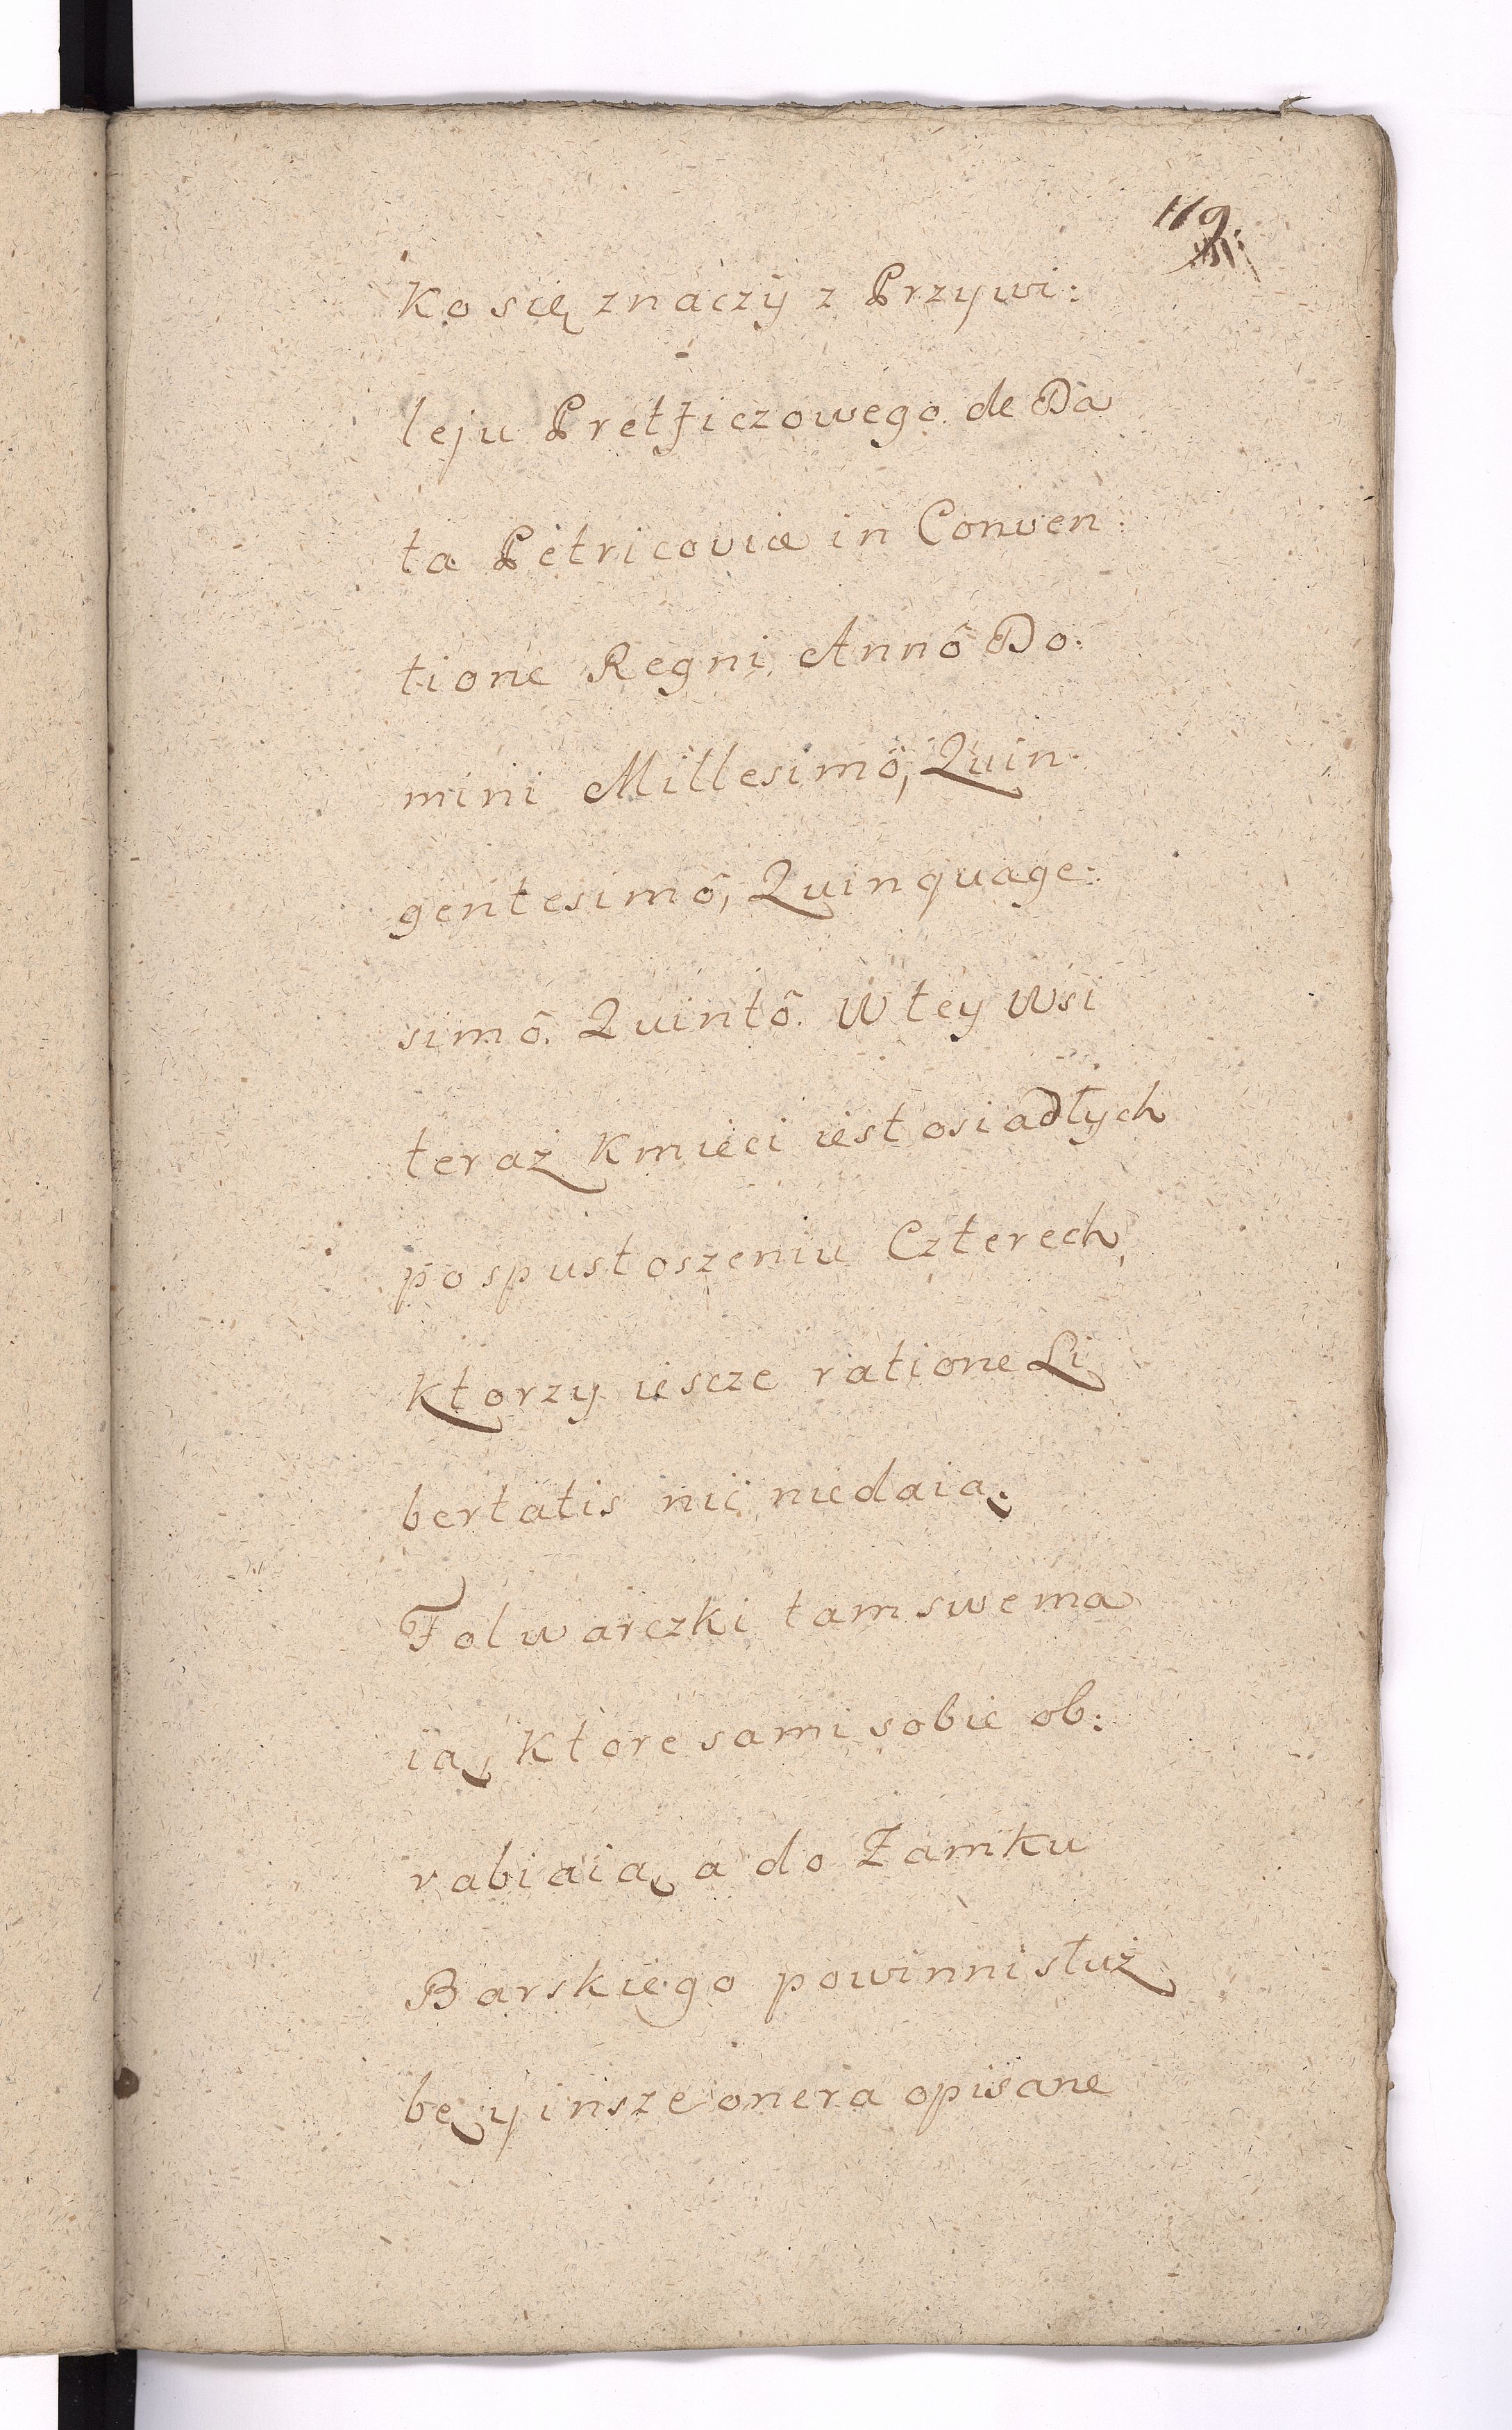 119.
Ko się znaczy z Przywi:
leju Pretficzowego de Da
ta Petricoviæ in Conven:
tione Regni Annô Do:
mini Millesimô, Quin:
gentesimô, Quinquage:
simô. Quintô. W tey Wsi
teraz Kmieci iest osiadłych
po spustoszeniu Czterech,
Ktorzy iescze ratione Li
bertatis nic niedaią.
Folwarczki tam swe ma
ią, Ktore sami sobie ob:
rabiaią, a do Zamku
Barskiego powinni służ
bę y insze onera opisane